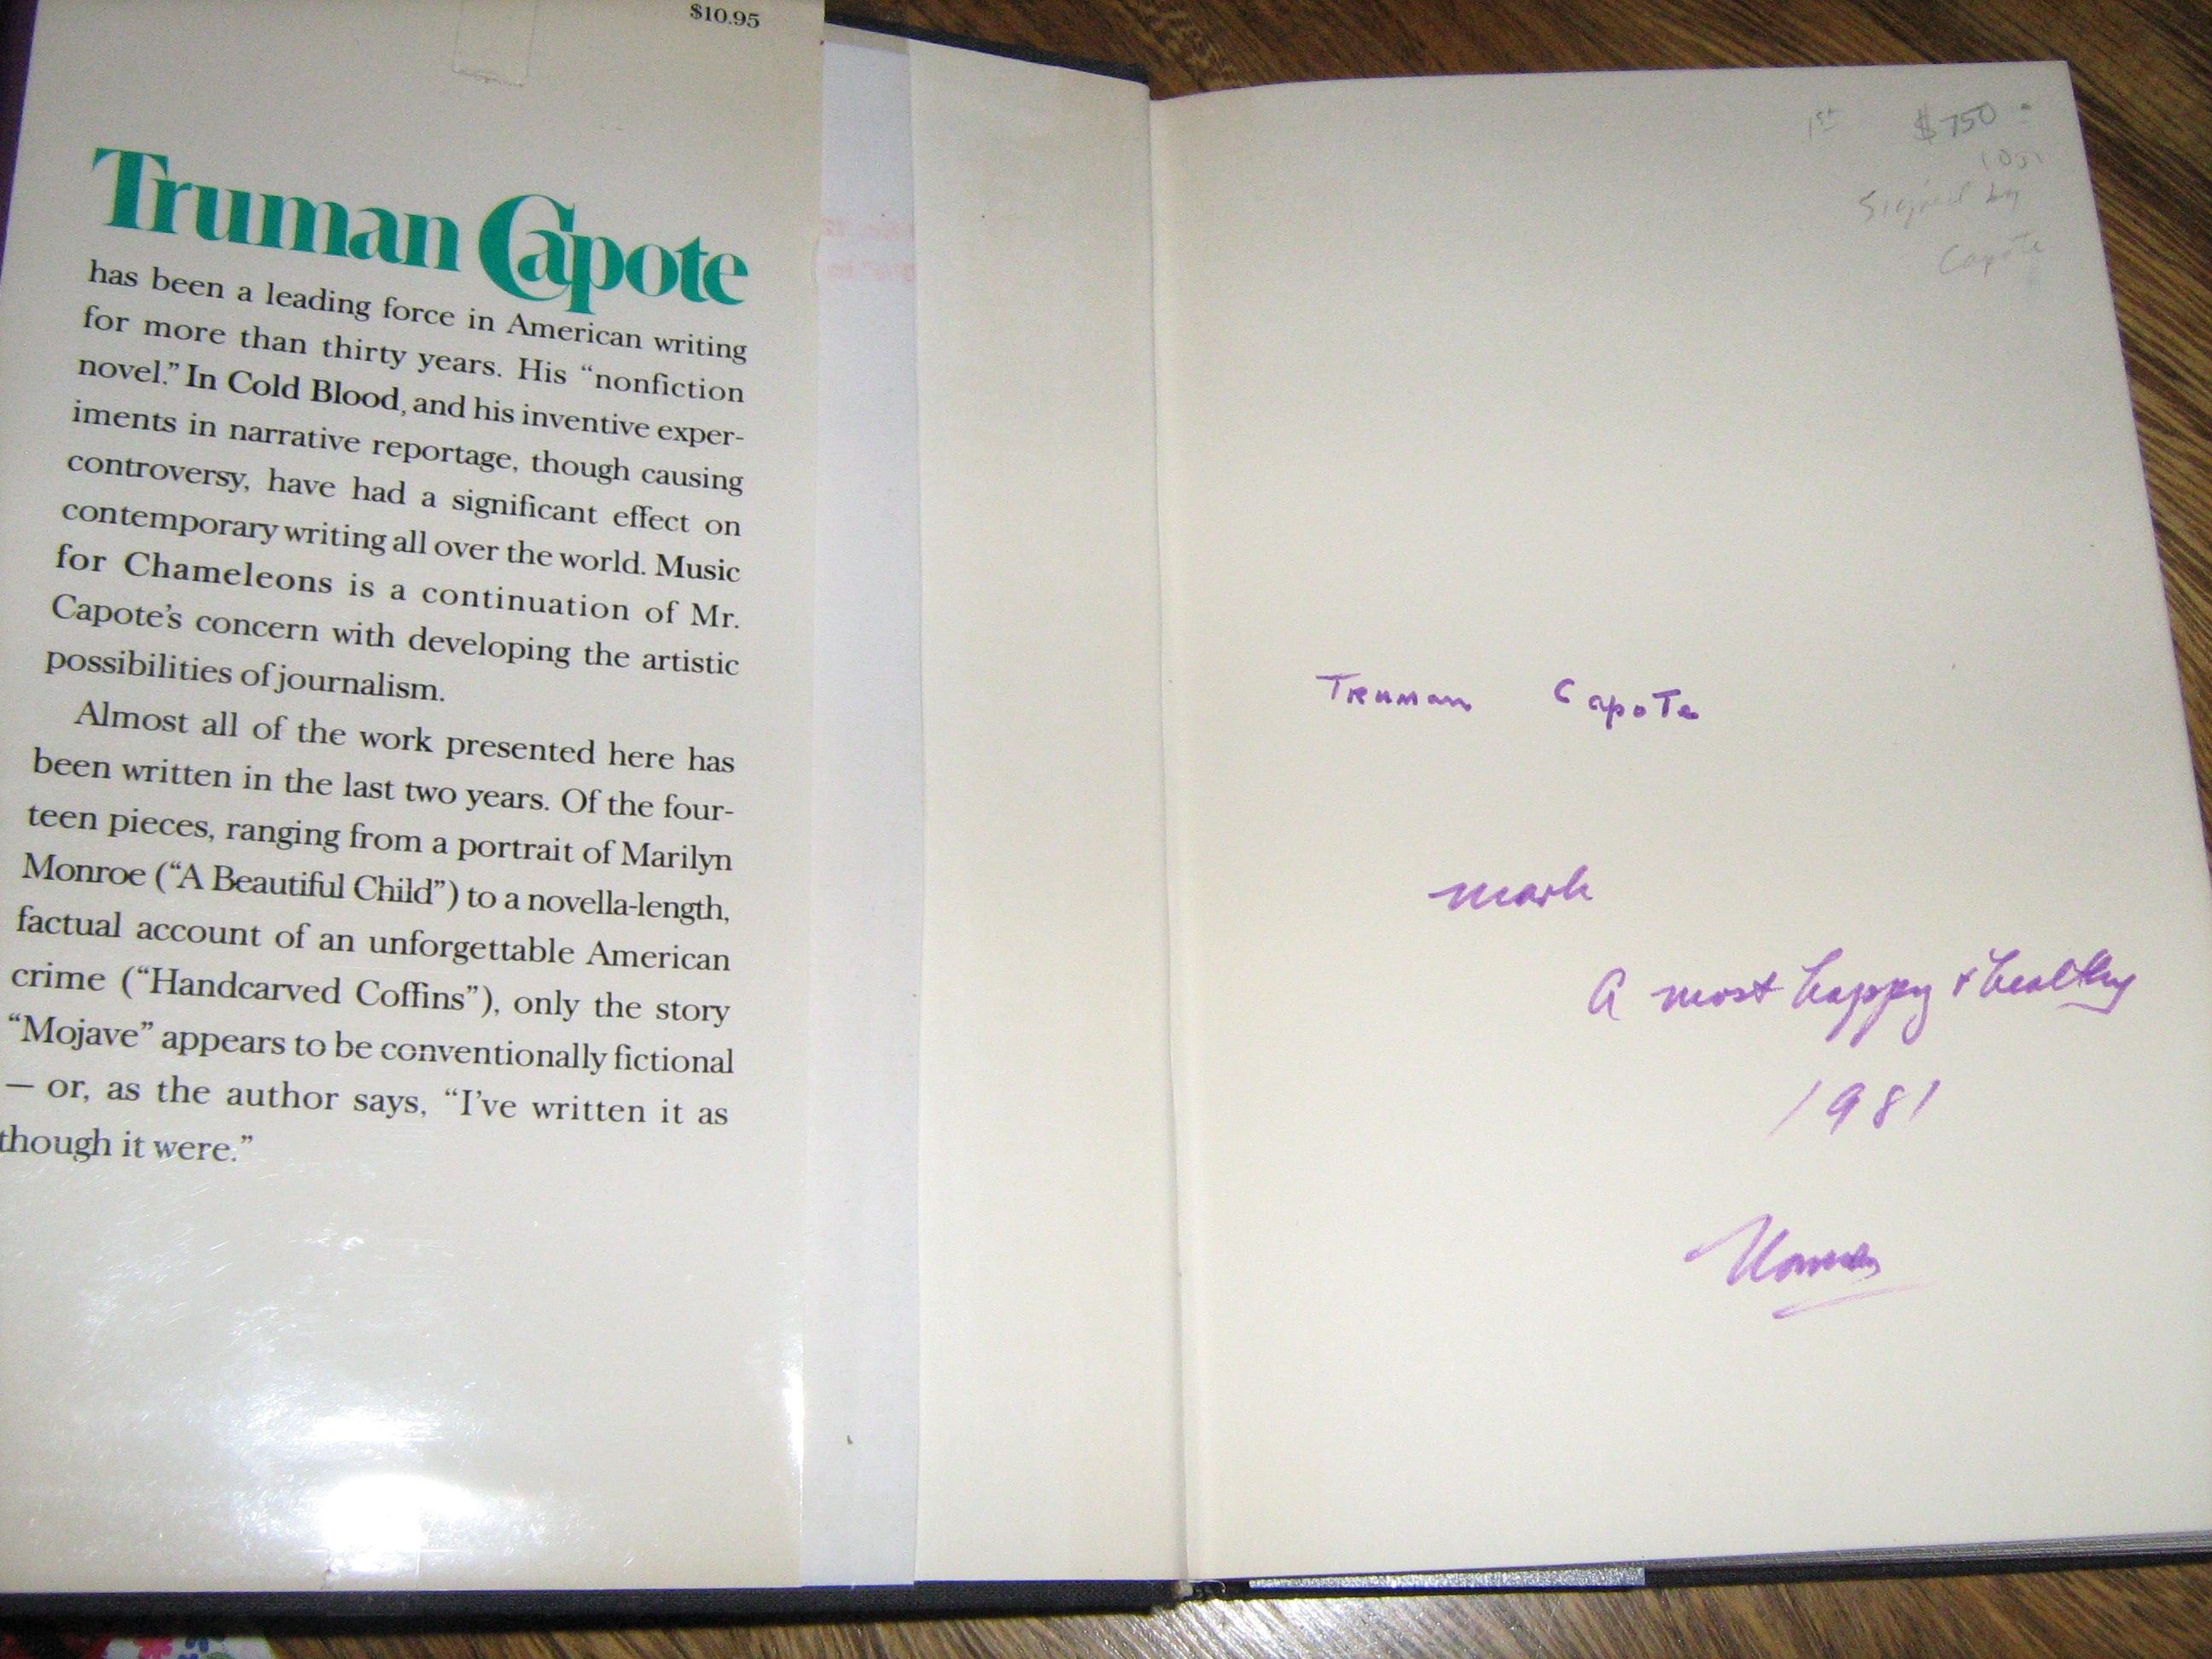 $10.95
Truman Capote
has been a leading force in American writing
for more than thirty years. His “nonfiction
novel.” In Cold Blood, and his inventive exper-
iments in narrative reportage, though causing
controversy, have had a significant effect on
contemporary writing all over the world. Music
for Chameleons is a continuation of Mr.
Capote’s concern with developing the artistic
possibilities of journalism.
Almost all of the work presented here has
been written in the last two years. Of the four-
teen pieces, ranging from a portrait of Marilyn
Monroe (“A Beautiful Child”) to a novella-length,
factual account of an unforgettable American
crime (“Handcarved Coffins”), only the story
“Mojave” appears to be conventionally fictional
— or, as the author says, “I’ve written it as
though it were.”
1st $750
Signed by
Capote
Truman Capote
mark
A most happy & healthy
1981